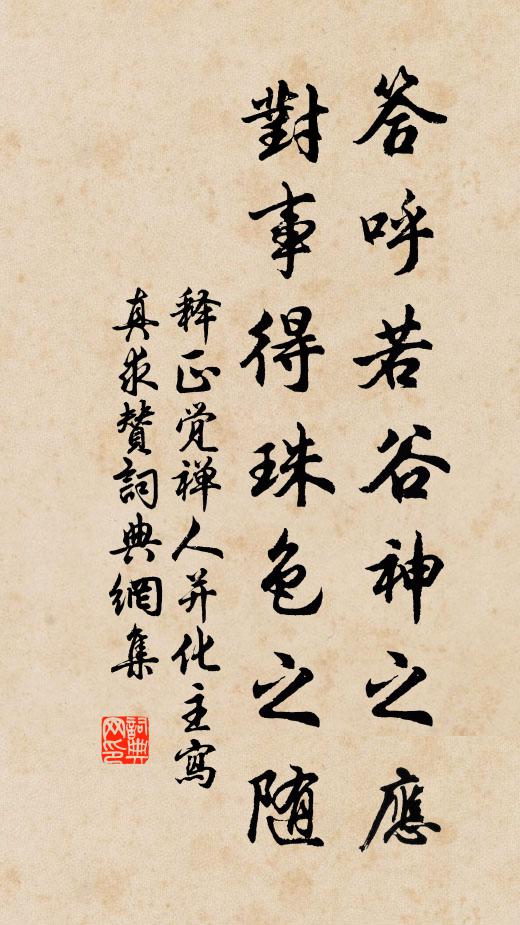 答呼若谷神之應
對事得珠色之随
释正觉禅人并化主寫
真求赞詞典網集
詞典网印